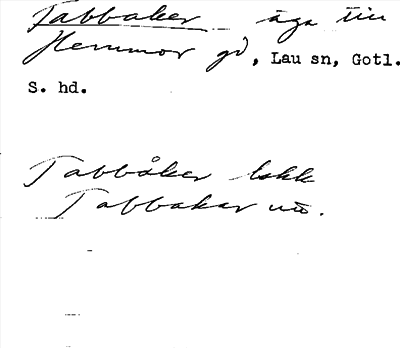 Tabbaker äga till
Hemmor gd, Lau sn, Gotl.
S. hd.
Tabbåker
Tabbakar